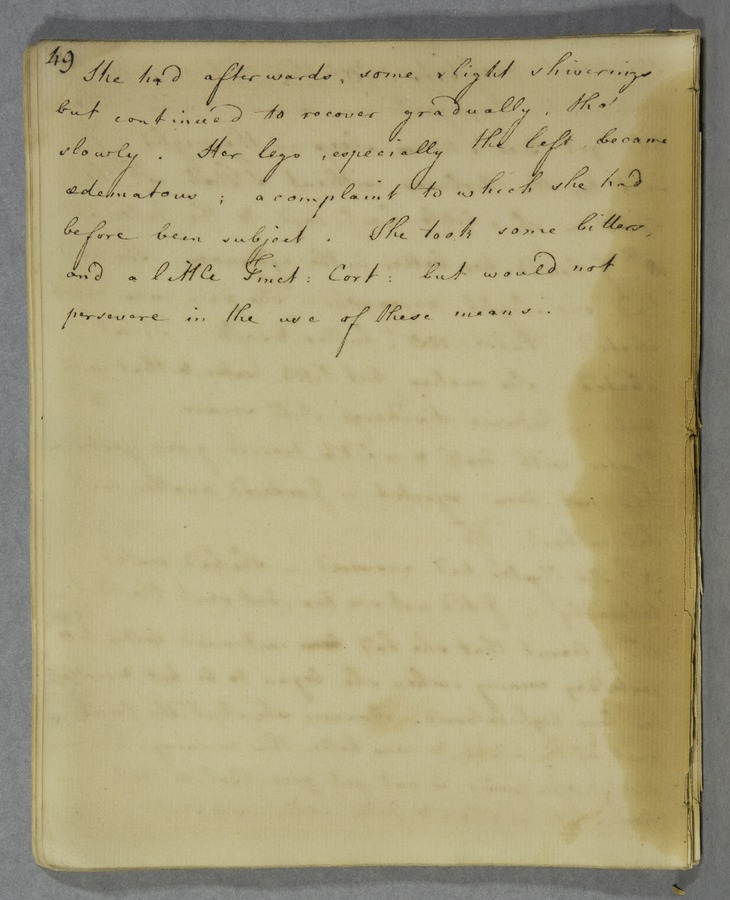 49
She had afterwards, some slight shiverings
but continued to recover gradually, tho'
slowly. Her legs, especially the left became
œdematous; a complaint to which she had
before been subject. She took some bitters,
and a little Tinct: Cort: but would not
persevere in the use of these means.